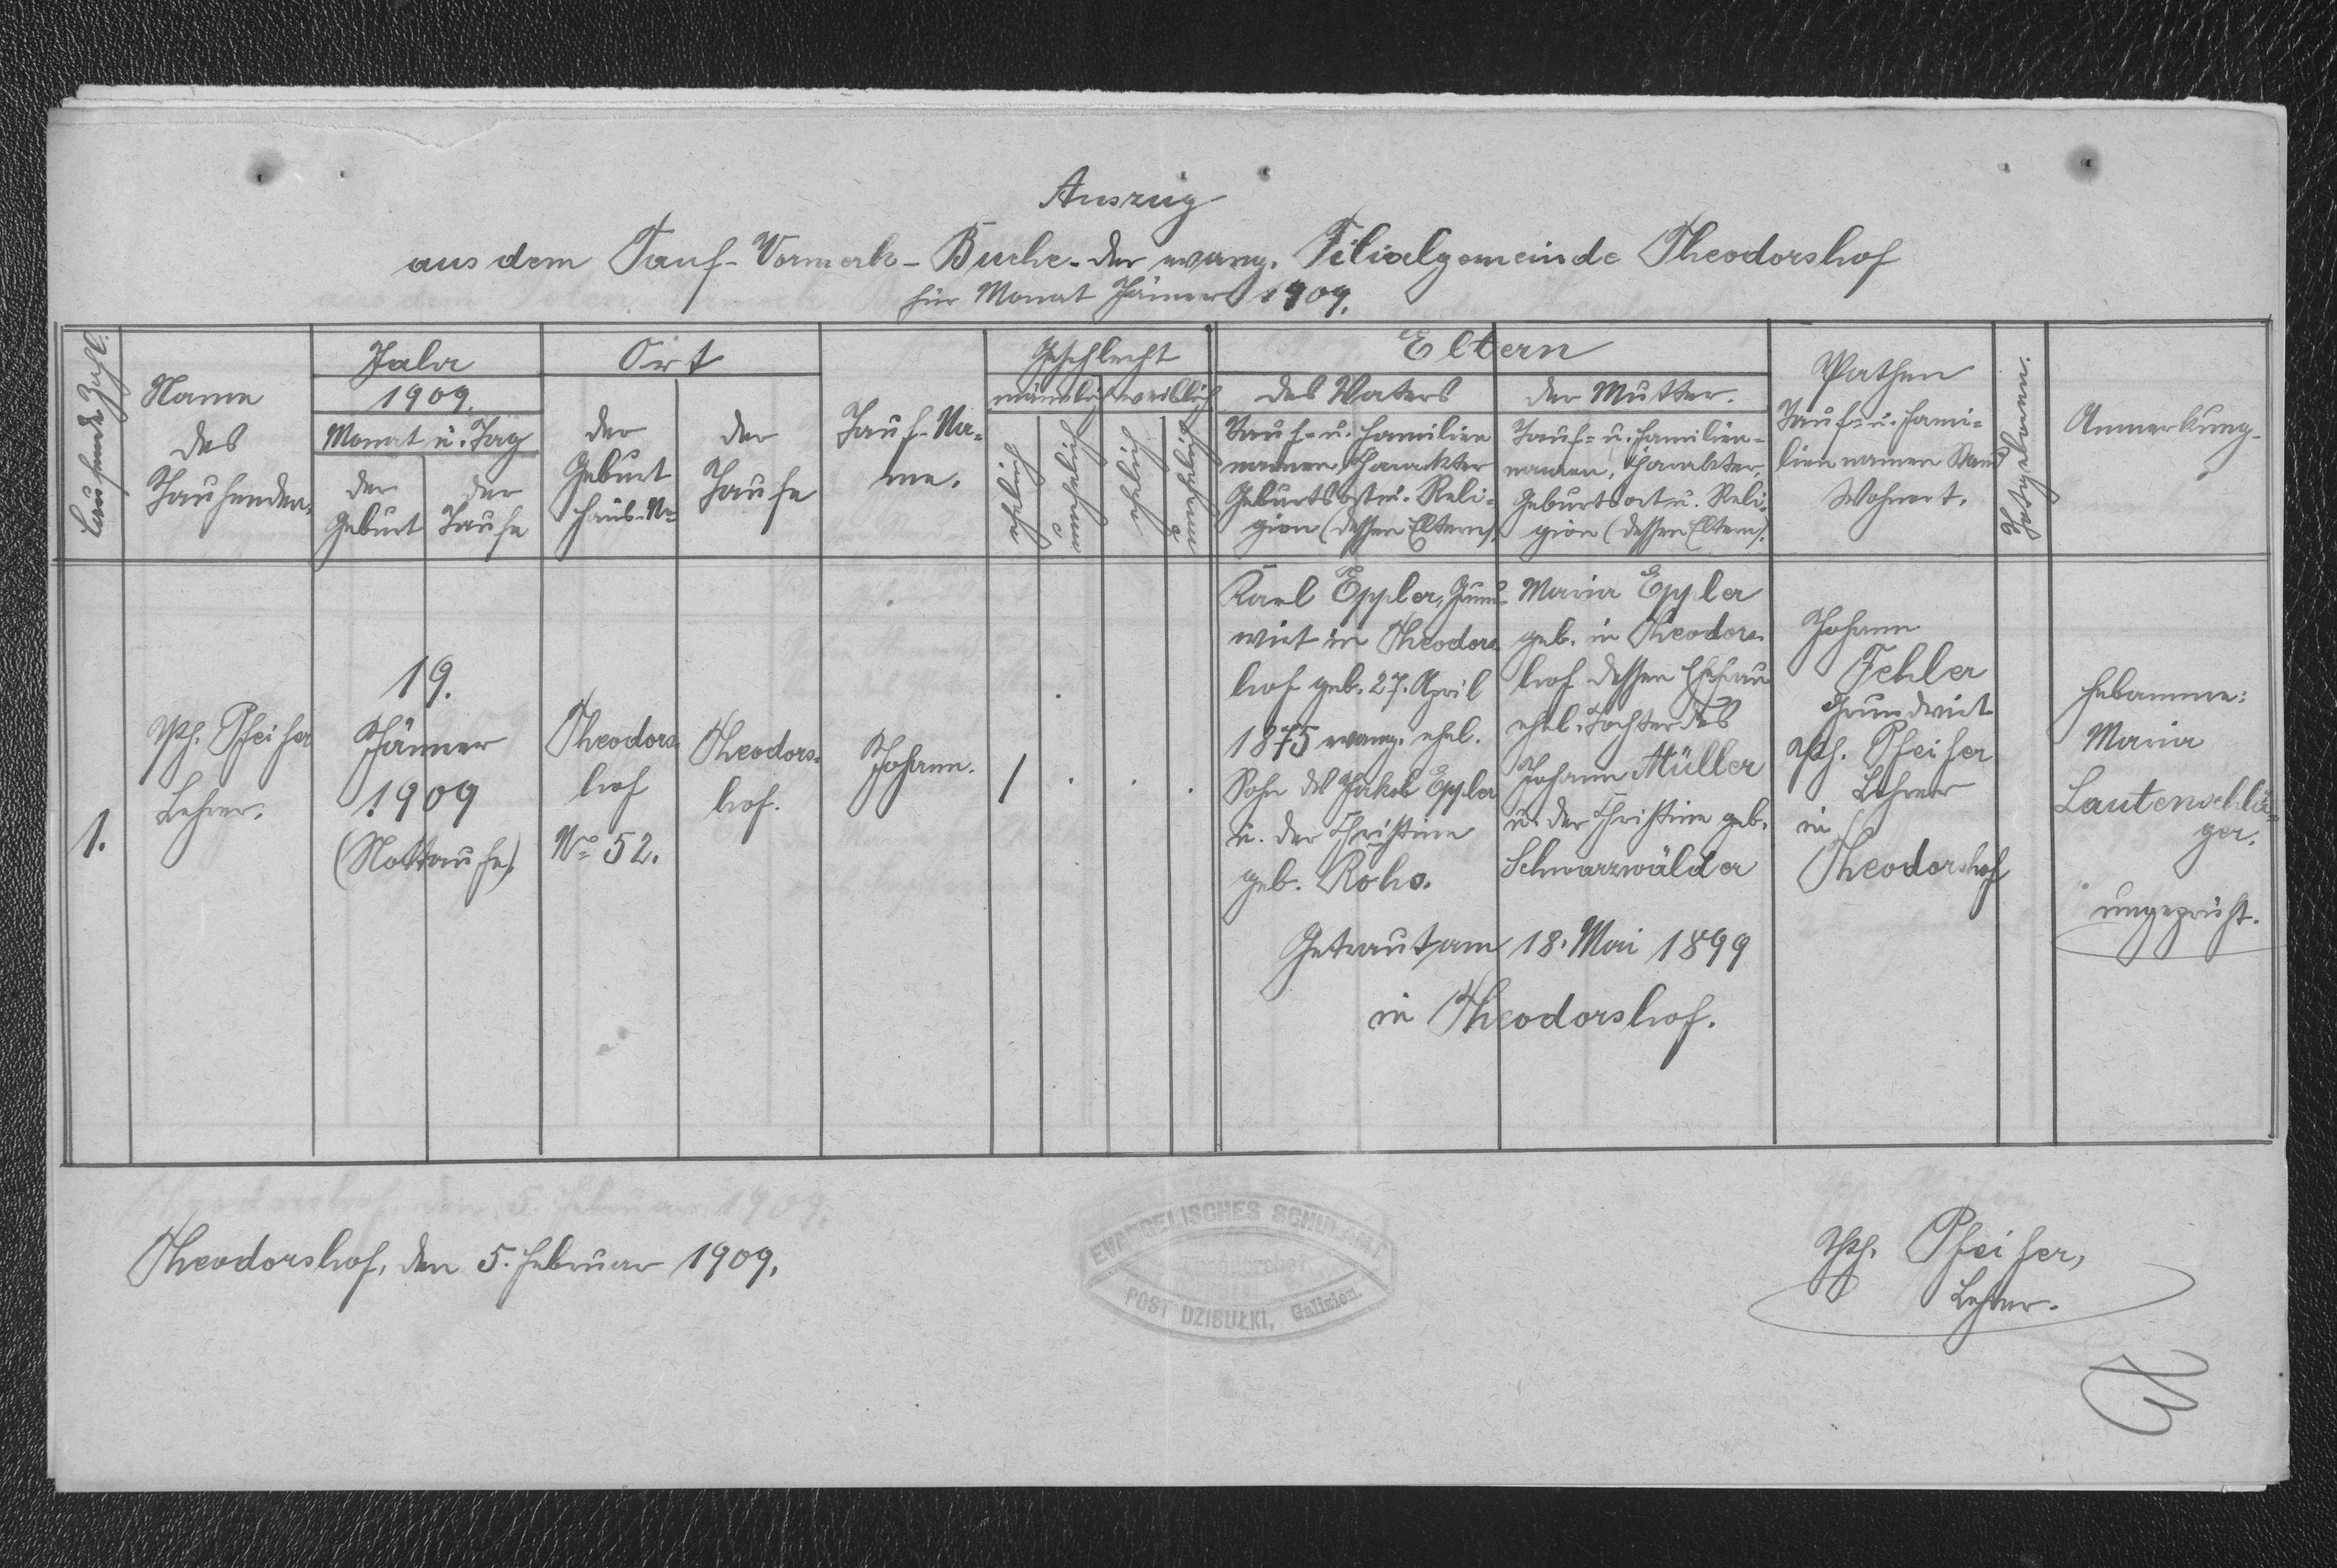 Auszug
aus dem Tauf-Vormerk-Buche der evang. Filialgemeinde Theodorshof
für Monat Jänner 1909.
Laufende Zahl.
Name
des
Taufenden.
Jahr
1909.
Monat u. Tag
der
Geburt
der
Taufe
Ort
der
Geburt
Haus-No
der
Taufe
Tauf-Na-
me.
Geschlecht
männlich
weiblich
ehelich
unehelich
ehelich
unehelich
Eltern
des Vaters
Tauf- u. Familien
namen, Charakter
Geburtsort u. Reli-
gion (dessen Eltern).
der Mutter.
Tauf- u. Familien-
namen, Charakter,
Geburtsort u. Reli-
gion (dessen Eltern).
Pathen
Tauf- u. Fami-
liennamen Stand
Wohnort.
Totgeboren.
Anmerkung.
1.
Ph. Pfeifer
Lehrer.
19.
Jänner
1909
(Nottaufe).
Theodors-
hof
No 52.
Theodors-
hof.
Johann.
/
Karl Eppler, Grund-
wirt in Theodors-
hof geb. 27. April
1875 evang. ehel.
Sohn des Jakob Eppler
u. der Christine
geb.
Maria Eppler
geb. in Theodors-
hof dessen Ehefrau
ehel. Tochter des
Johann Müller
u. der Christine geb.
Schwarzwälder
Getraut am 18. Mai 1899
in Theodorshof.
Johann
Fehler
Grundwirt
Ph. Pfeifer
Lehrer
in
Theodorshof
Hebamme:
Maria
Lautenschlä-
ger.
ungeprüft.
Theodorshof, den 5. Februar 1909.
EVANGELISCHES SCHULAMT
POST DZIBUŁKI, Galizien.
Ph. Pfeifer,
Lehrer.